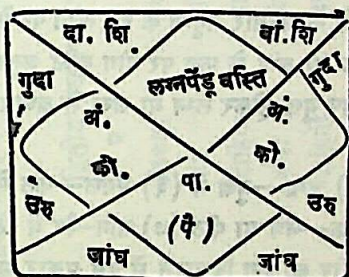 दा. शि. वां.शि
गुदा लग्नपेंडू वस्ति गुदा
अं. अं.
को. पा. को.
उरु (पे) उरु
जांघ जांघ